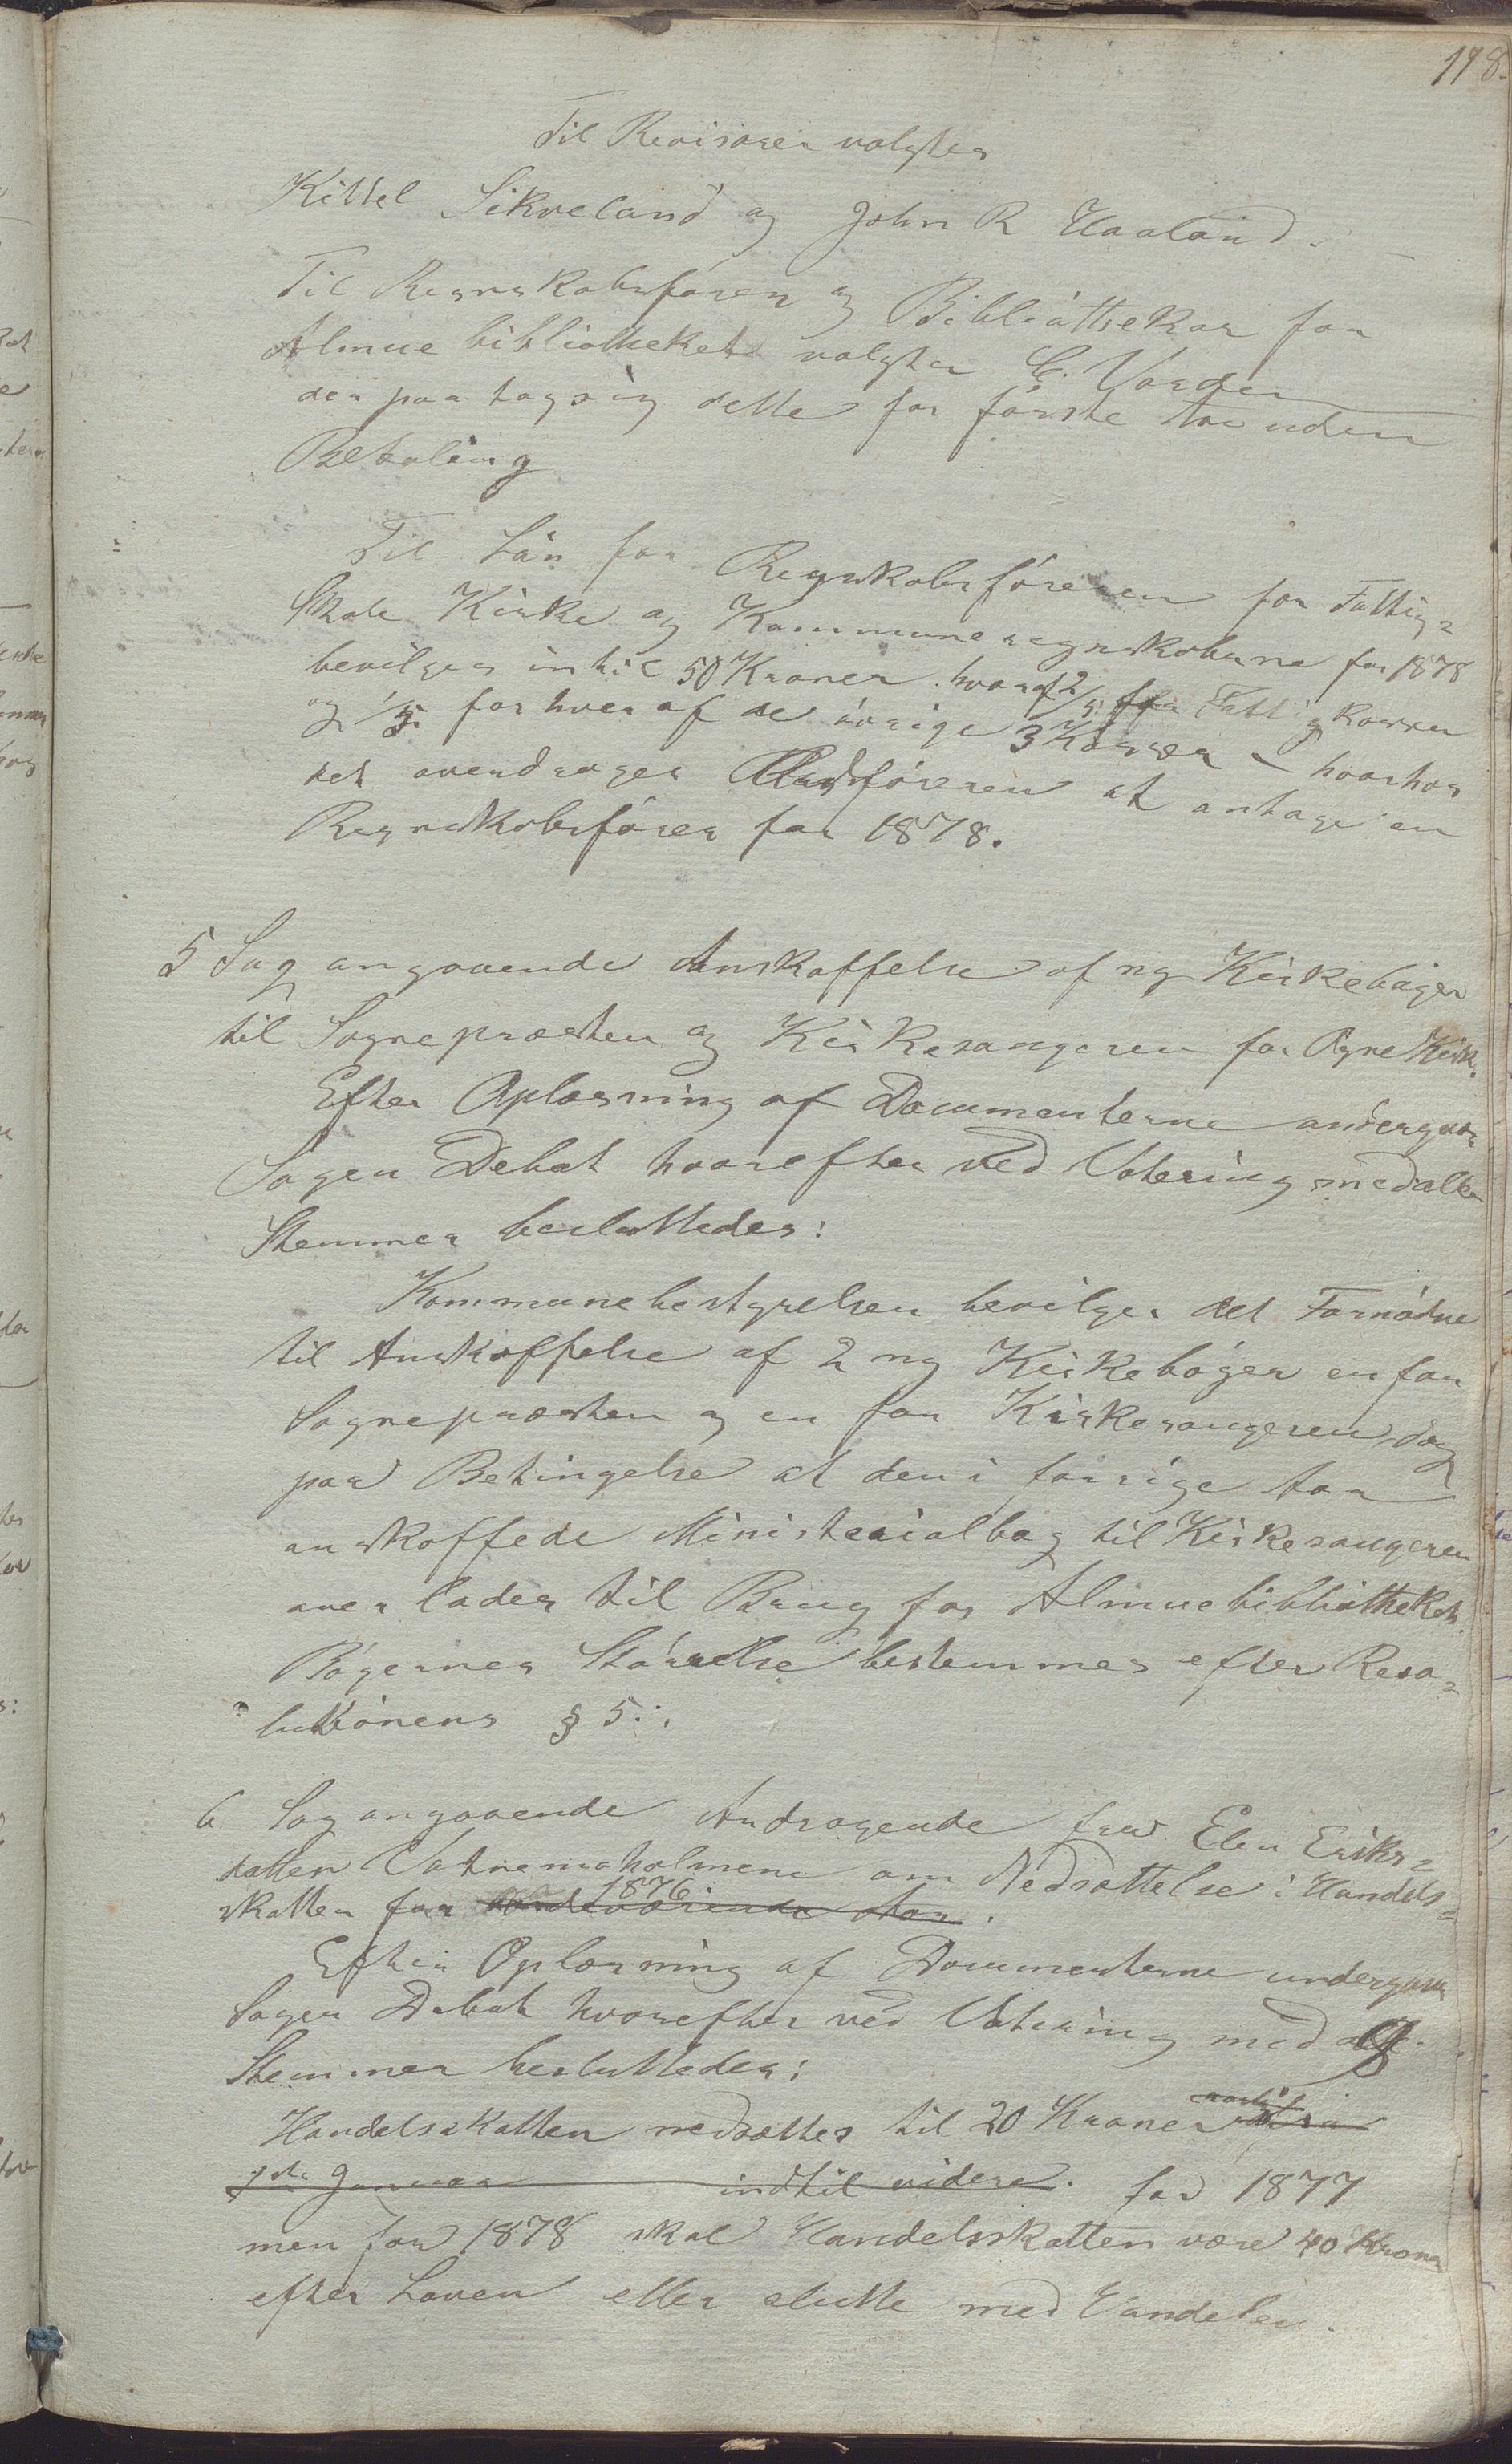 118.
Til Revisorer valgtes
Kittel Sikveland og John R Haaland.
Til Regnskabsfører og Bibliothekar for
Almuebibliotheket valgtes C. Varden
der paa tog sig dette for første Aar uden
Betaling
Til Løn for Regnskabsføreren for Fattig-
Skole Kirke og Kommuneregnskaberne for 1878
bevilges indtil 50 Kroner hvoraf 2/5 fra Fattigkassen
og 1/5 for hver af de øvrige 3 Kasser – hvorhos
det overdrages Ordføreren at antage en
Regnskabsfører for 1878.
5 Sag angaaende Anskaffelse af ny Kirkebøger
til Sognepræsten og Kirkesangeren for Ogne Kirk.
Efter Oplæsning af Documenterne undergav
Sagen Debat hvorefter ved Votering med alle
Stemmer besluttedes:
Kommunebestyrelsen bevilger det Fornødne
til Anskaffelse af 2 ny Kirkebøger en for
Sognepræsten og en for Kirkesangeren, dog
paa Betingelse at den i forrige Aar
anskaffede Ministerialbog til Kirkesangeren
overlades til Brug for Almuebibliotheket.
Bøgernes Størrelse bestemmes efter Reso-
lutionens § 5.
6 Sag angaaende Andragende fra Elen Eriks-
datter Vatnemoholmene om Nedsættelse i Handels-
skatten for 1876 indeværende Aar.
Efter Oplæsning af Documenterne undergav
Sagen Debat hvorefter ved Votering med
Stemmer besluttedes:
Handelsskatten nedsættes til 20 Kroner aarlig fra
1ste Januar indtil videre. for 1877
men for 1878 skal Handelsskatten være 40 Kroner
efter Loven eller slutte med Handelen.